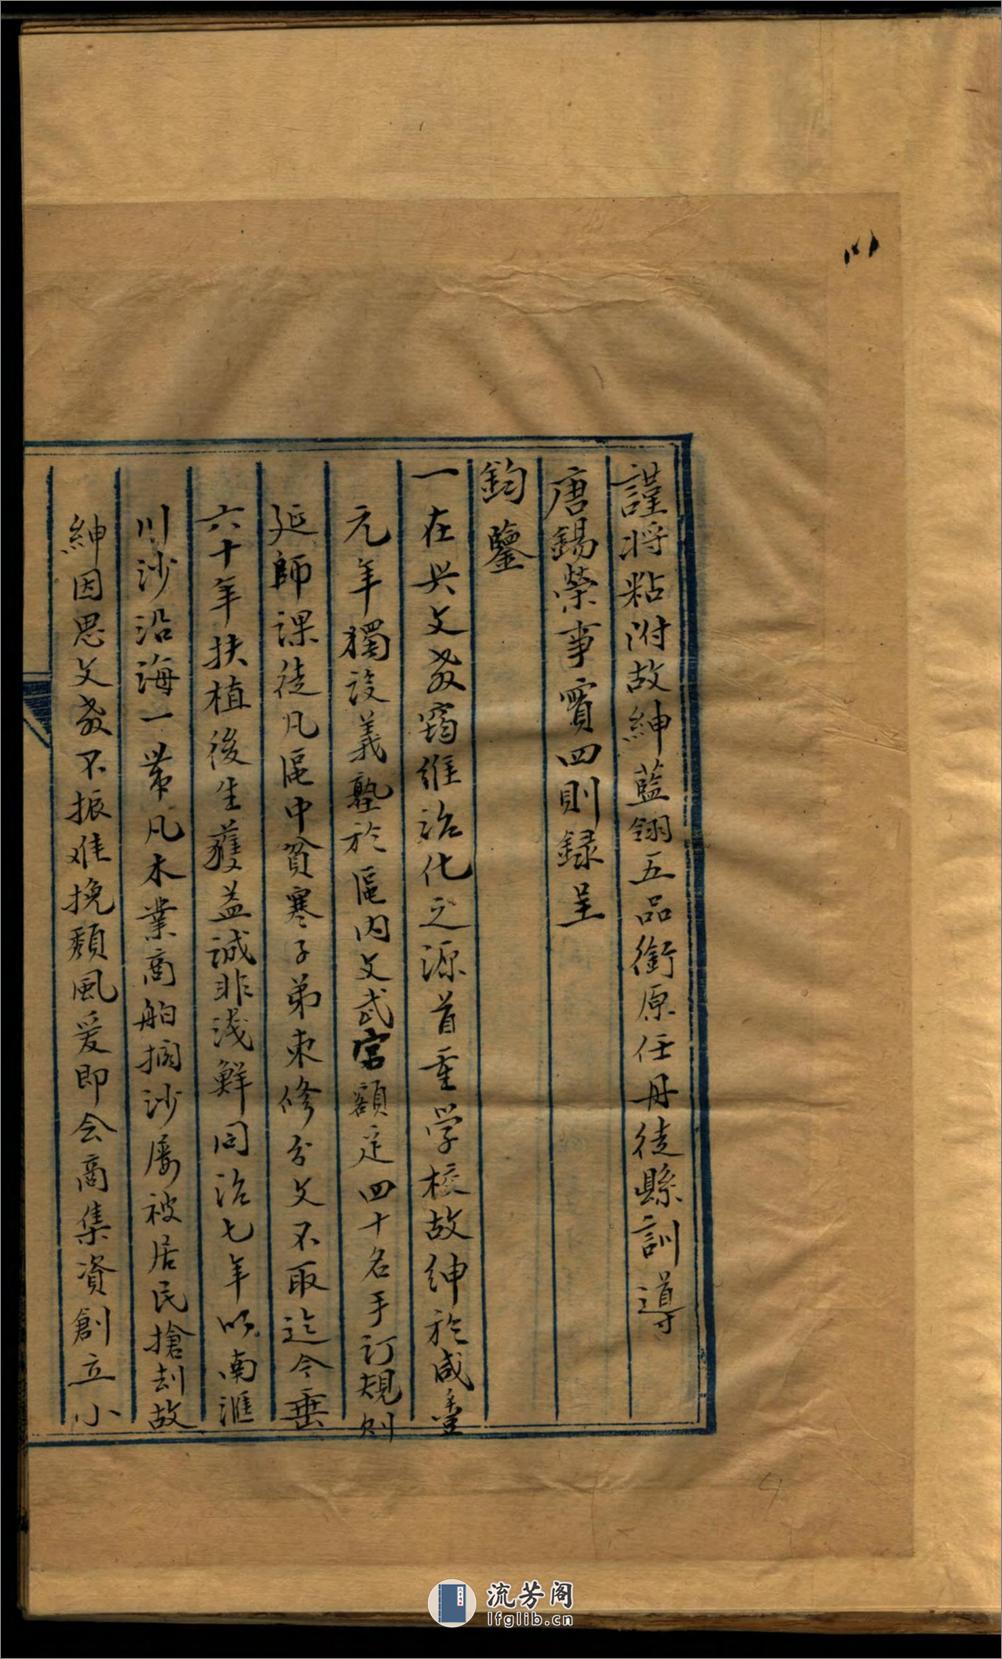 謹将粘附故紳藍翎五品銜原任丹徒縣訓導
唐錫榮事實四則録呈
鈞鑒
一在興文教窃維治化之源首重学校故紳於咸豊
元年獨設義塾於區内文武宫額定四十名手訂規則
延師課徒凡區中貧寒子弟束修分文不取迄今垂
六十年扶植後生獲益誠非浅鮮同治七年以南滙
川沙沿海一帯凡木業商船搁沙屡被居民搶刦故
紳因思文教不振难挽頽風爰即会商集資創立小
流芳阁
lfglib.cn